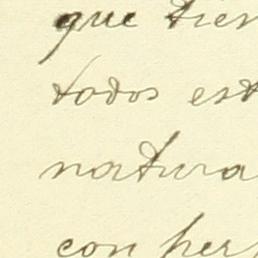 que tien
todos est
natura
con per